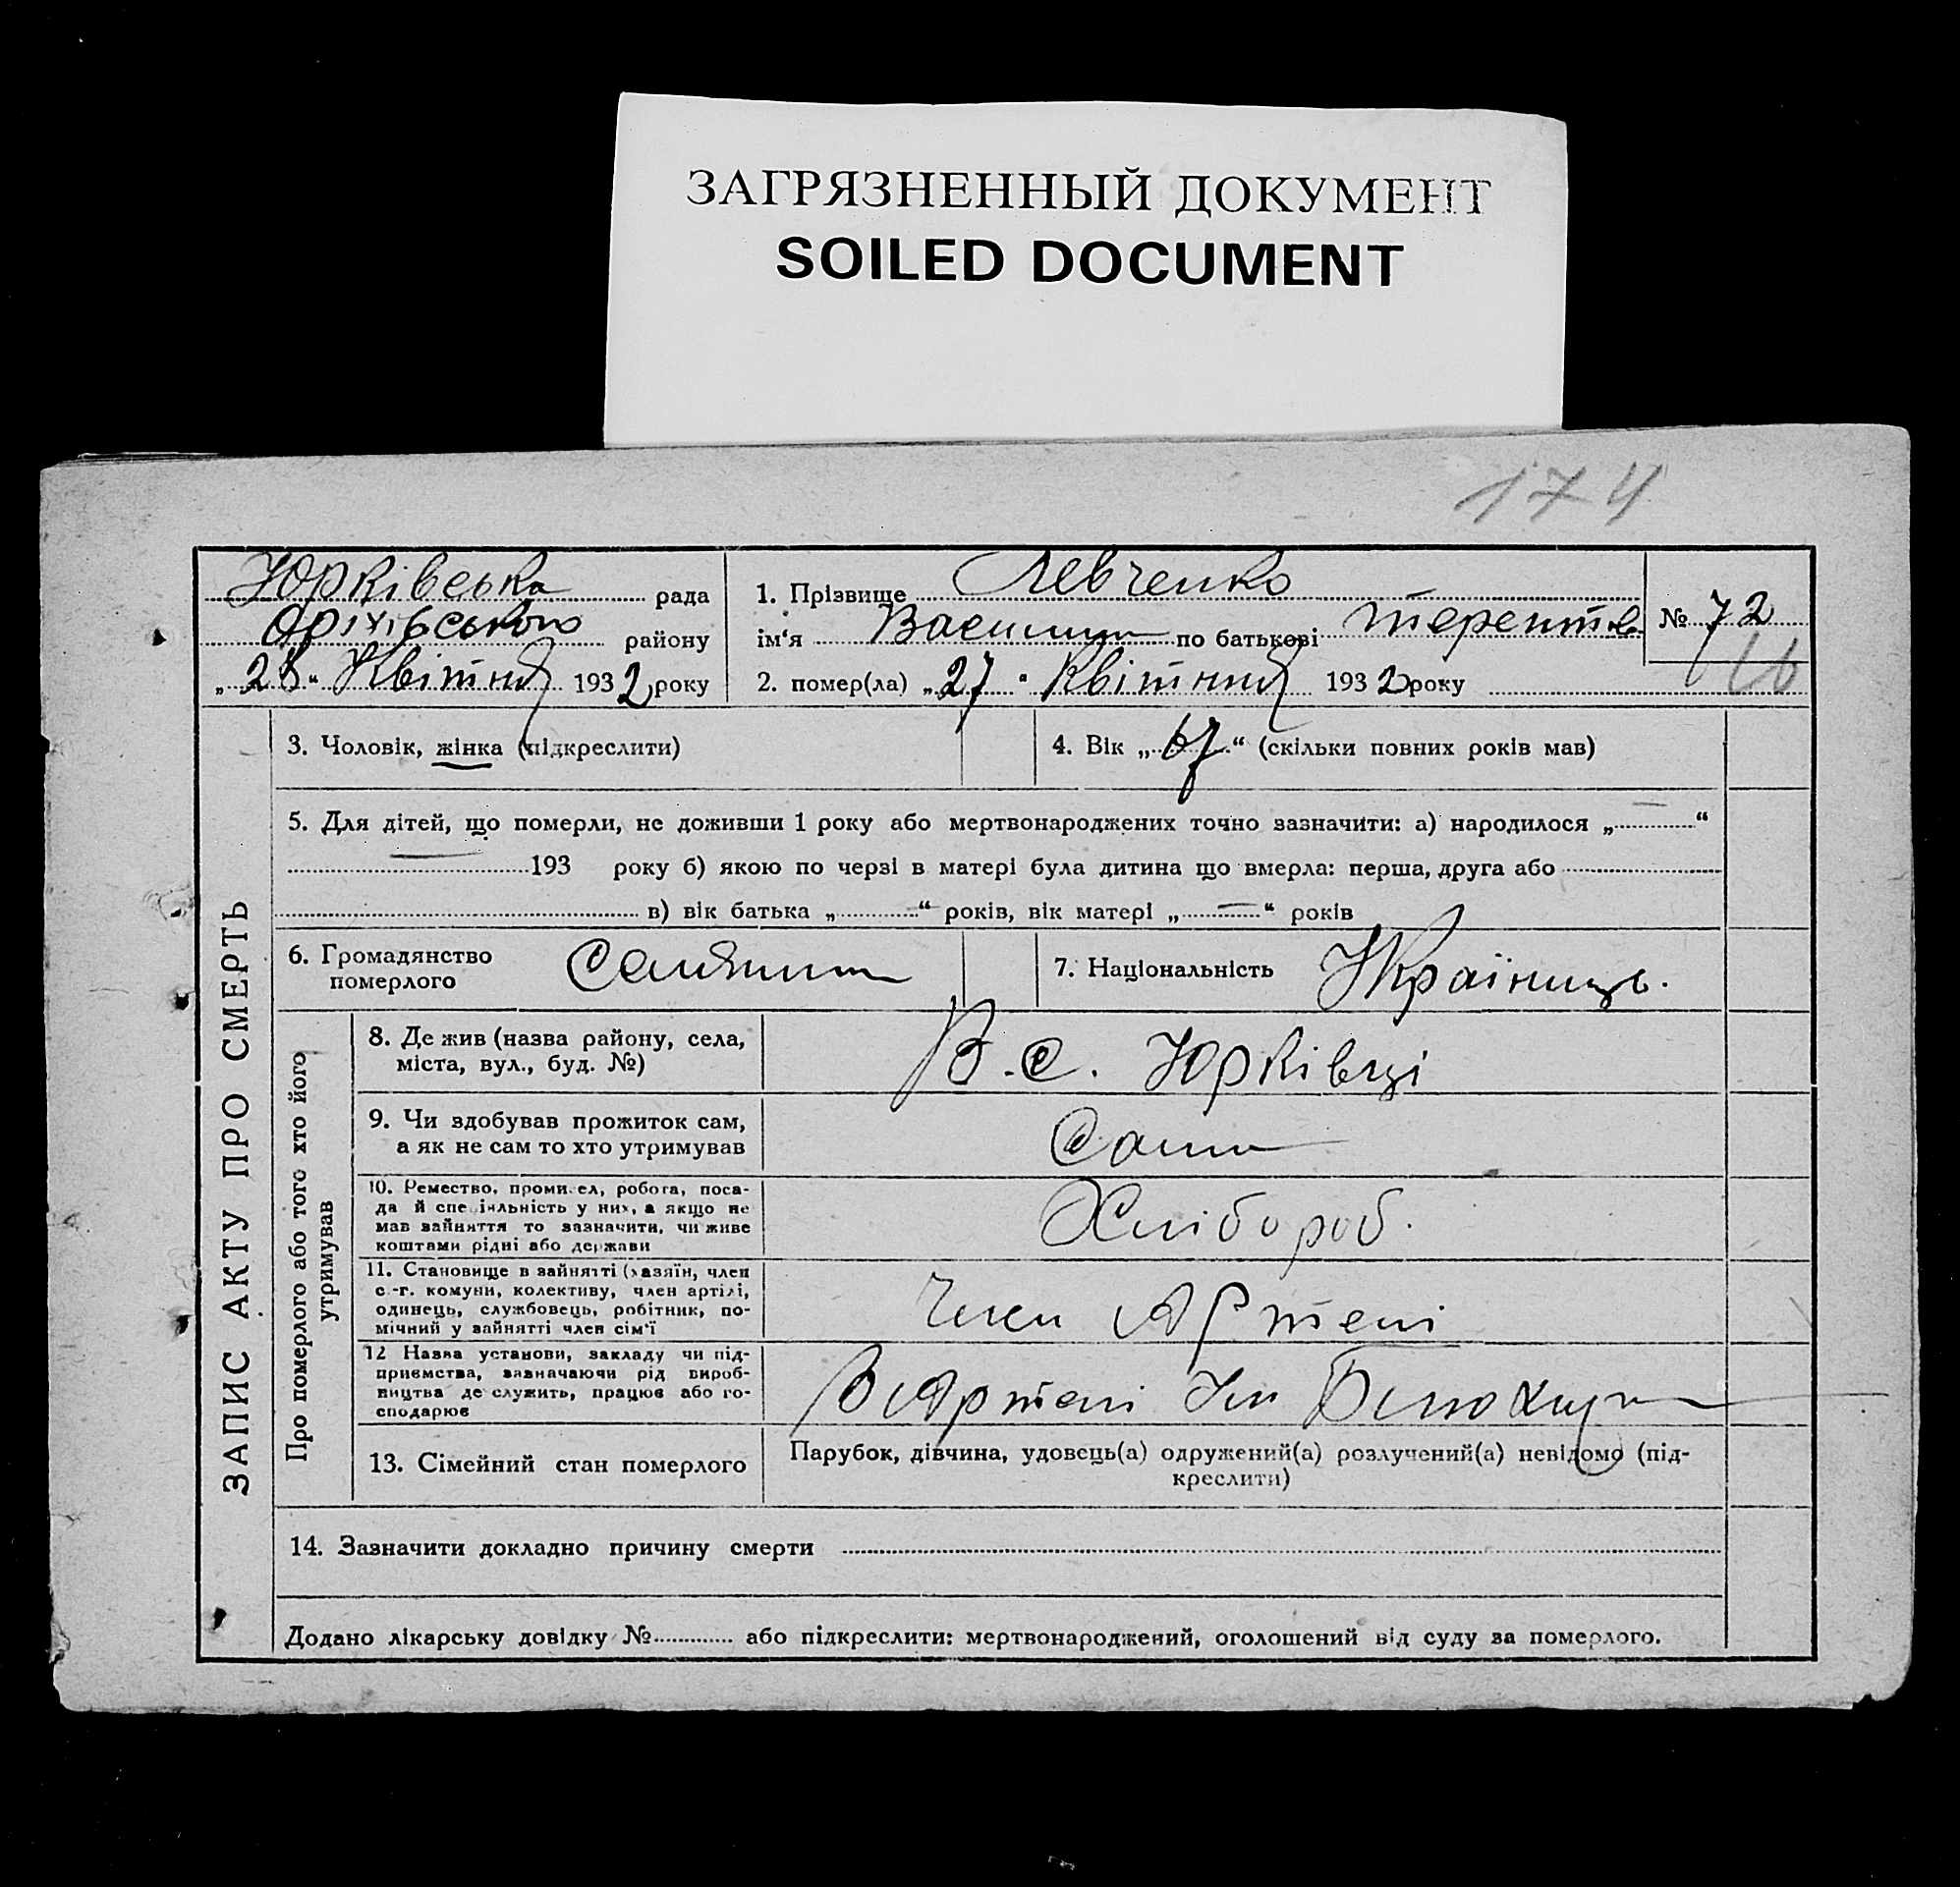 ЗАГРЯЗНЕННЫЙ ДОКУМЕНТ
SOILED DOCUMENT
174
Юрківська рада
Оріхівського району
„28“ Квітня 1932 року
1. Прізвище Левченко
ім‘я Василина по батькові Терентів
2. помер(ла) „27“ Квітня 1932 року
№ 72
16
ЗАПИС АКТУ ПРО СМЕРТЬ
3. Чоловік, жінка (підкреслити)
4. Вік „67“ (скільки повних років мав)
5. Для дітей, що померли, не доживши 1 року або мертвонароджених точно зазначити: а) народилося „ — “
— 193 року б) якою по черзі в матері була дитина що вмерла: перша, друга або
в) вік батька „ — “ років, вік матері „ — “ років
6. Громадянство
померлого
7. Національність Українець.
Про померлого або того хто його
утримував
8. Де жив (назва району, села,
міста, вул., буд. №)
В. с. Юрківці
9. Чи здобував прожиток сам,
а як не сам то хто утримував
Сама
10. Ремество, промисел, робота, поса-
да й спеціяльність у них, а якщо не
мав зайняття то зазначити, чи живе
коштами рідні або держави
Хлібороб.
11. Становище в зайнятті (хазяїн, член
с.-г. комуни, колективу, член артілі,
одинець, службовець, робітник, по-
мічний у зайнятті член сім‘ї
Член Артелі
12 Назва установи, закладу чи під-
приємства, зазначаючи рід вироб-
ництва де служить, працює або го-
сподарює
В Артелі Ім
13. Сімейний стан померлого
Парубок, дівчина, удовець(а) одружений(а) розлучений(а) невідомо (під-
креслити)
14. Зазначити докладно причину смерти
Додано лікарську довідку № або підкреслити: мертвонароджений, оголошений від суду за померлого.